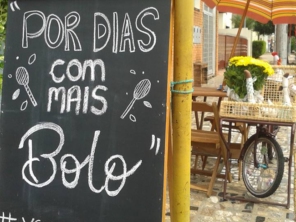 "POR DIAS
COM
MAIS
Bolo"